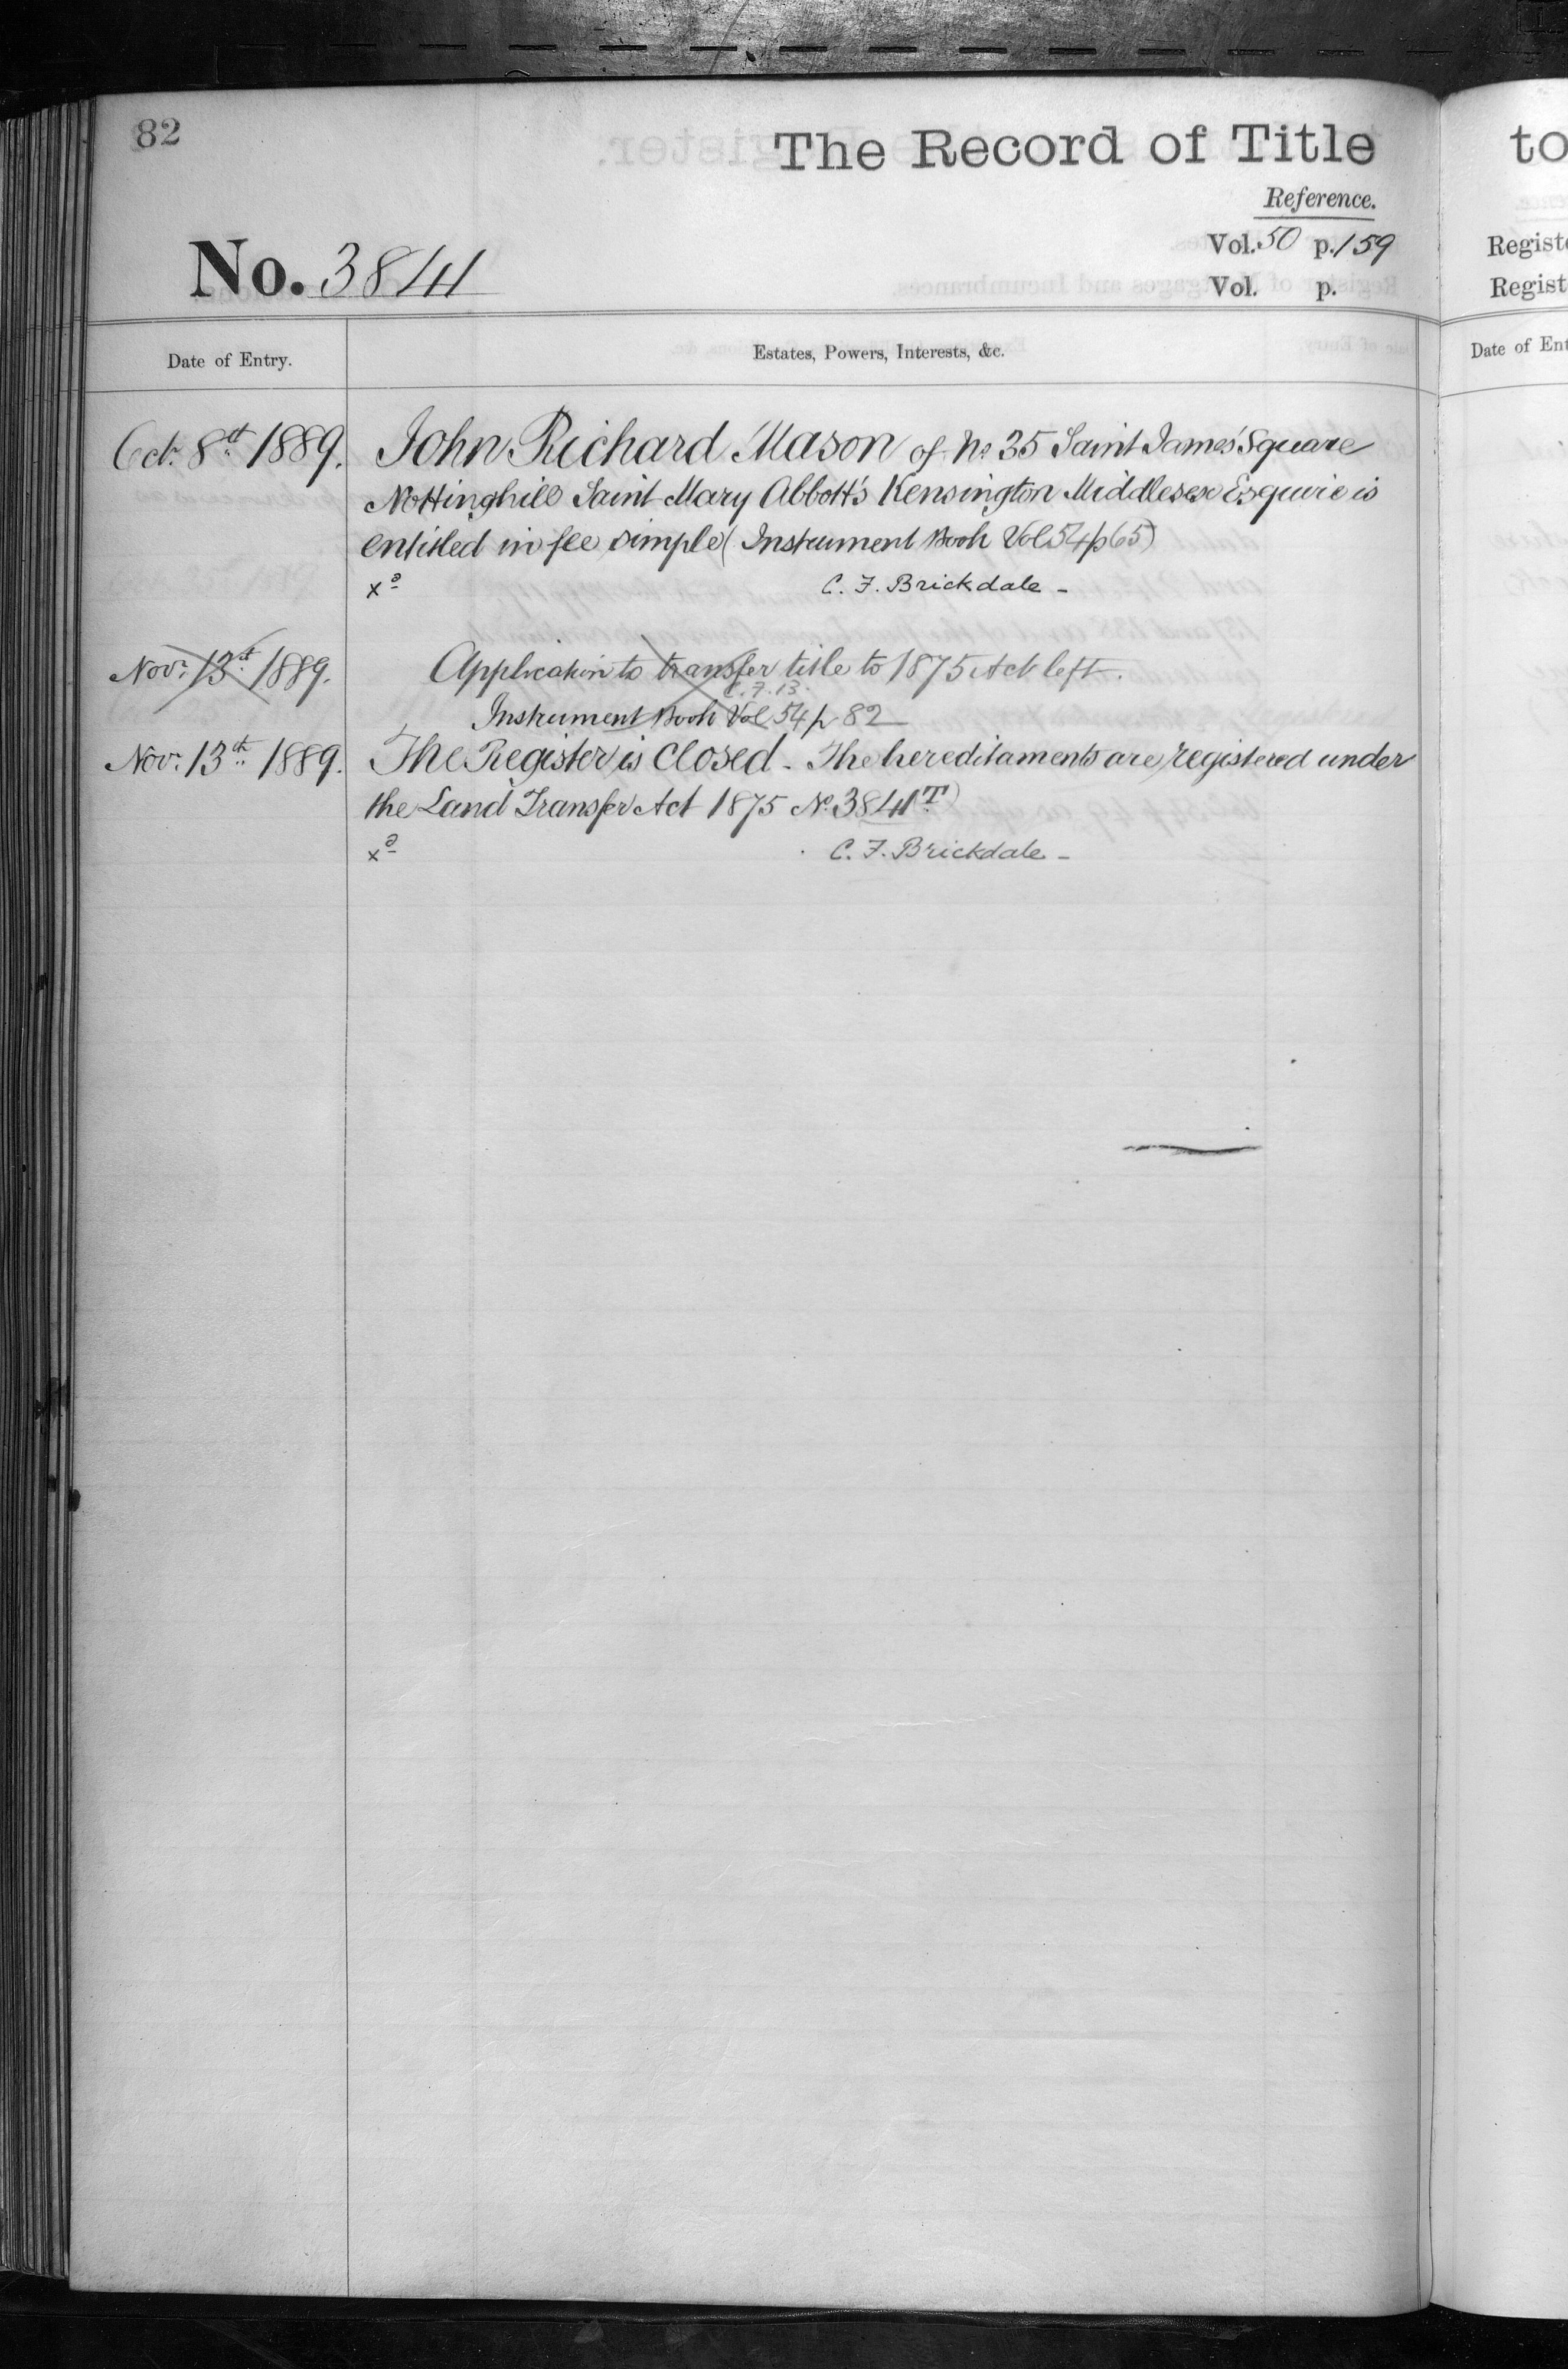 82
The Record of Title
Reference.
No. 3841
Vol. 50 p. 159
Vol. p.
Date of Entry.
Estates, Powers, Interests, &c.
Oct. 8th 1889. John Richard Mason of No 35 Saint James' Square
Nottinghill Saint Mary Abbott's Kensington Middlesex Esquire is
entitled in fee simple (Instrument Book Vol 54 p 65)
C. F. Brickdale -
Novr 13th 1889. Application to transfer title to 1875 Act left.
C. F. B.
Instrument Book Vol 54 p 82
Novr 13th 1889. The Register is closed - The hereditaments are registered under
the Land Transfer Act 1875 No. 3841T)
C. F. Brickdale -
to
Registe
Regist
Date of Ent